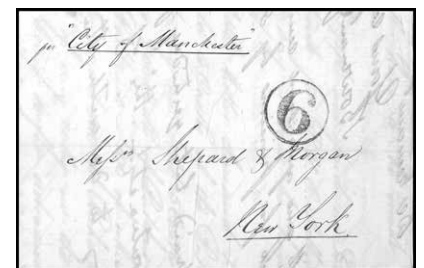 per "City of Manchester"
6
Messrs Shepard & Morgan
New York